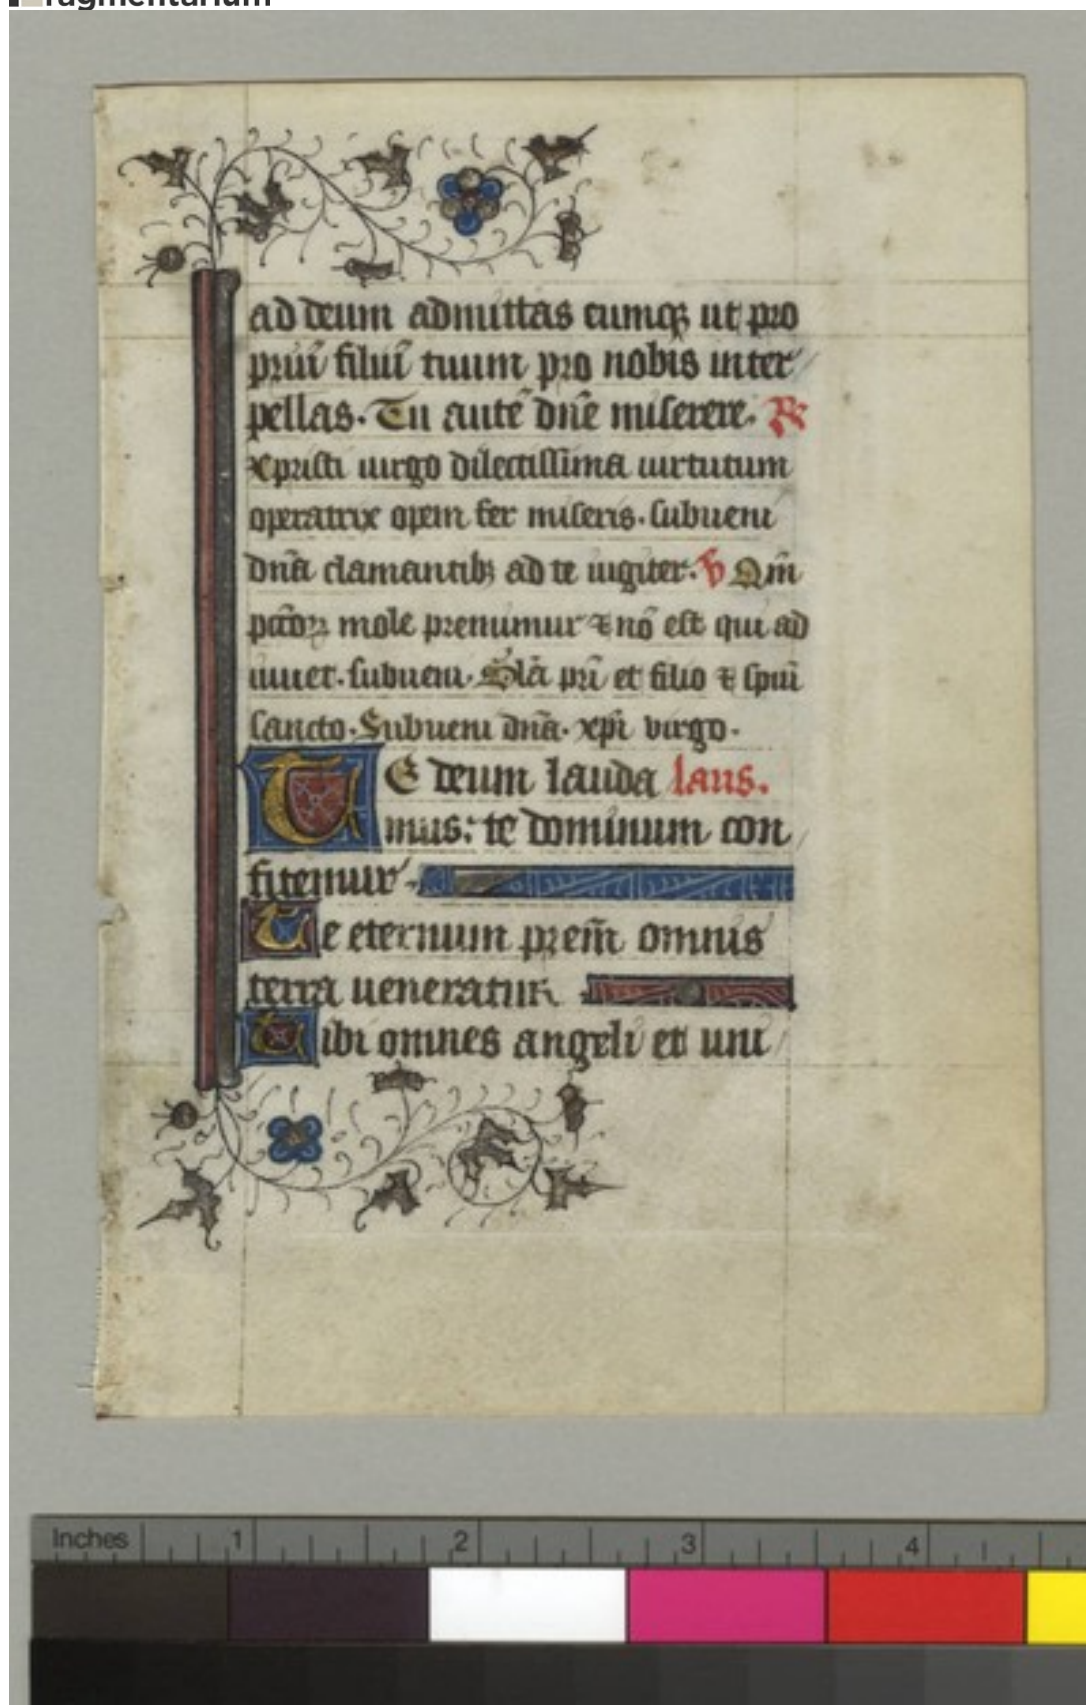 fragmentarium
ad deum admittas eumqꝫ ut pro
priū filiū tuum pro nobis inter
pellas. Tu autē dn̄e miserere. ℟
xpristi uirgo dilectissima uirtutum
operatrix opem fer miseris. subueni
dn̄a clamantibꝫ ad te iugiter. ℣ Qm̄
pctō℞ mole premimur ⁊ nō est qui ad
iuuet. subueni. Gl̄a pr̄i et filio ⁊ spiū
sancto. Subueni dn̄a. xp̄i virgo.
TE deum lauda laus.
mus: te dominum con
fitemur
Te eternum prem̄ omnis
terra ueneratur
Tibi omnes angeli et uni
Inches 1 2 3 4